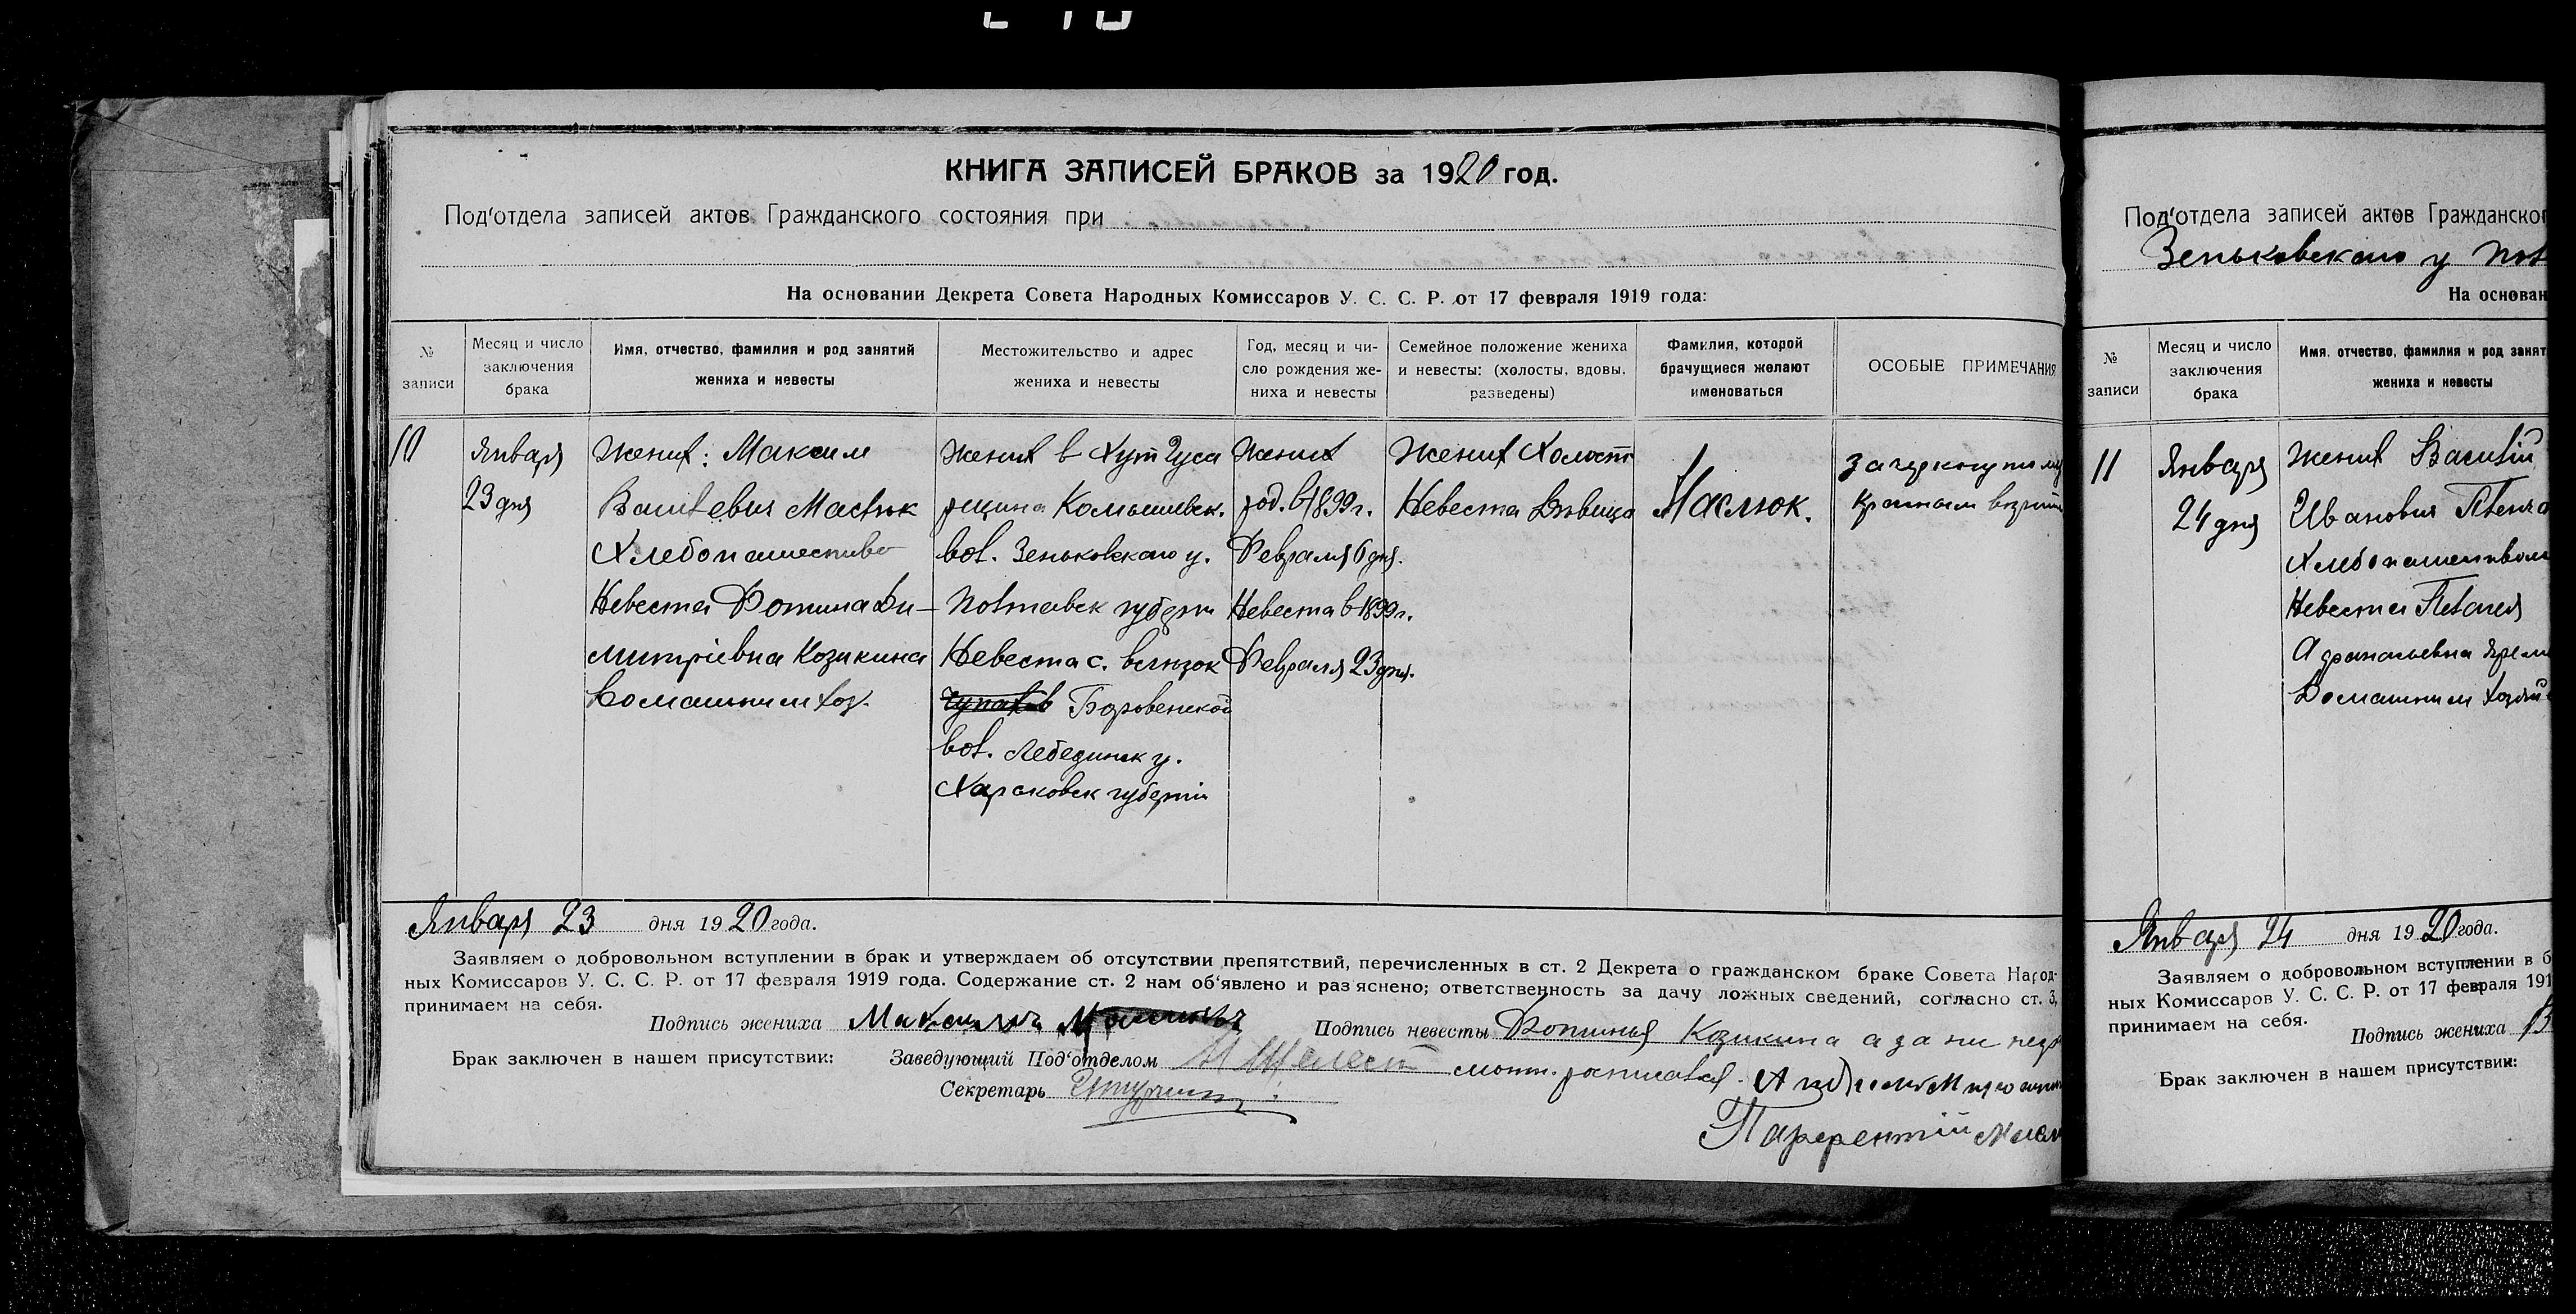 КНИГА ЗАПИСЕЙ БРАКОВ за 1920 год.
Под'отдела записей актов Гражданского состояния при
На основании Декрета Совета Народных Комиссаров У. С. С. Р. от 17 февраля 1919 года:
№ записи
Месяц и число заключения брака
Имя, отчество, фамилия и род занятий жениха и невесты
Местожительство и адрес жениха и невесты
Год, месяц и число рождения жениха и невесты
Семейное положение жениха и невесты: (холосты, вдовы, разведены)
Фамилия, которой брачущиеся желают именоваться
ОСОБЫЕ ПРИМЕЧАНИЯ
10
Января
23 дня
Жених: Максим
Васильевич Маслюк
Хлебопашество
Невеста Фотина Ди-
митріевна Козикина
Домашним хоз.
Жених в Хут Гуса
рщина Комышевск.
вол. Зеньковского у.
Полтавск губерн
Невеста с.
Боровенской
вол. Лебединск у.
Харьковск губерніи
Жених
род. в 1899 г.
Февраля 6 дня.
Невеста в 1899 г.
Февраля 23 дня.
Жених Холост
Невеста Дѣвица
Маслюк.
Января 23 дня 1920 года.
Заявляем о добровольном вступлении в брак и утверждаем об отсутствии препятствий, перечисленных в ст. 2 Декрета о гражданском браке Совета Народ-
ных Комиссаров У. С. С. Р. от 17 февраля 1919 года. Содержание ст. 2 нам об'явлено и раз'яснено; ответственность за дачу ложных сведений, согласно ст. 3,
принимаем на себя.
Подпись жениха Максимъ Подпись невесты Фотинья Козикина а за ни негр
Брак заключен в нашем присутствии: Заведующий Под'отделом И Шелест росписался.
Секретарь
Парфентій
Под'отдела записей актов Гражданског
Зеньковского у Пол
На основан
№ записи
Месяц и число заключения брака
Имя, отчество, фамилия и род занят
жениха и невесты
11
Января
24 дня
Жених Василій
Иванович
Невеста Пелагея
Домашним
Января 24 дня 1920 года.
Заявляем о добровольном вступлении в б
ных Комиссаров У. С. С. Р. от 17 февраля 191
принимаем на себя.
Подпись жениха В
Брак заключен в нашем присутствии: